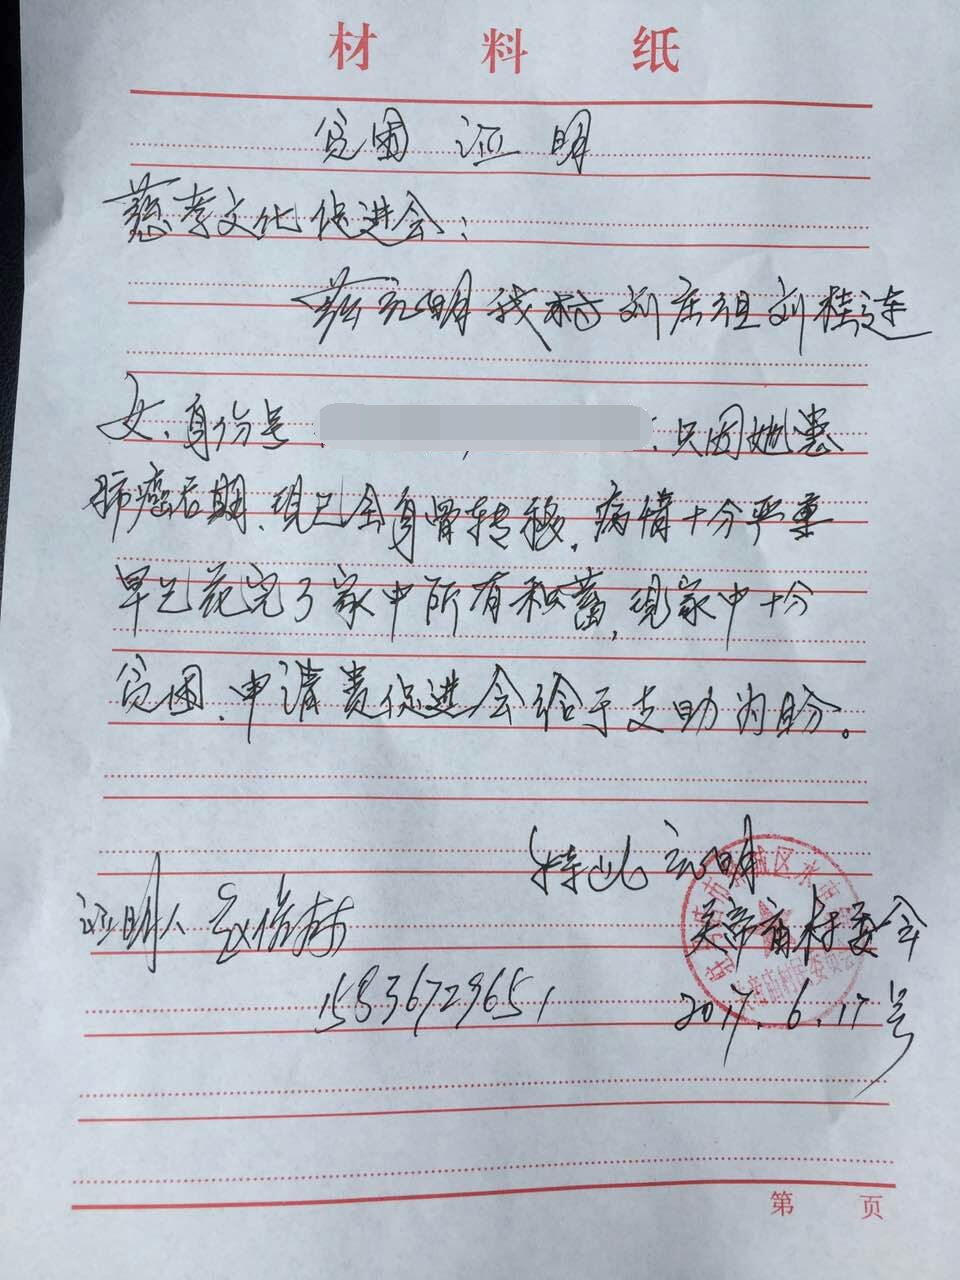 材料纸
贫困证明
慈孝文化促进会:
兹证明我村刘店组刘桂连
女、身份号
:只因她患
肺癌后期、现已全身骨转移,病情十分严重
早已花完了家中所有积蓄,现家中十分
贫困、申请贵促进会给于支助为盼。
特此证明
证明人
关帝庙村委会
15836729651
2017.6.17号
第 页